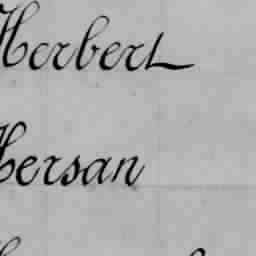 Herbert
Hersan